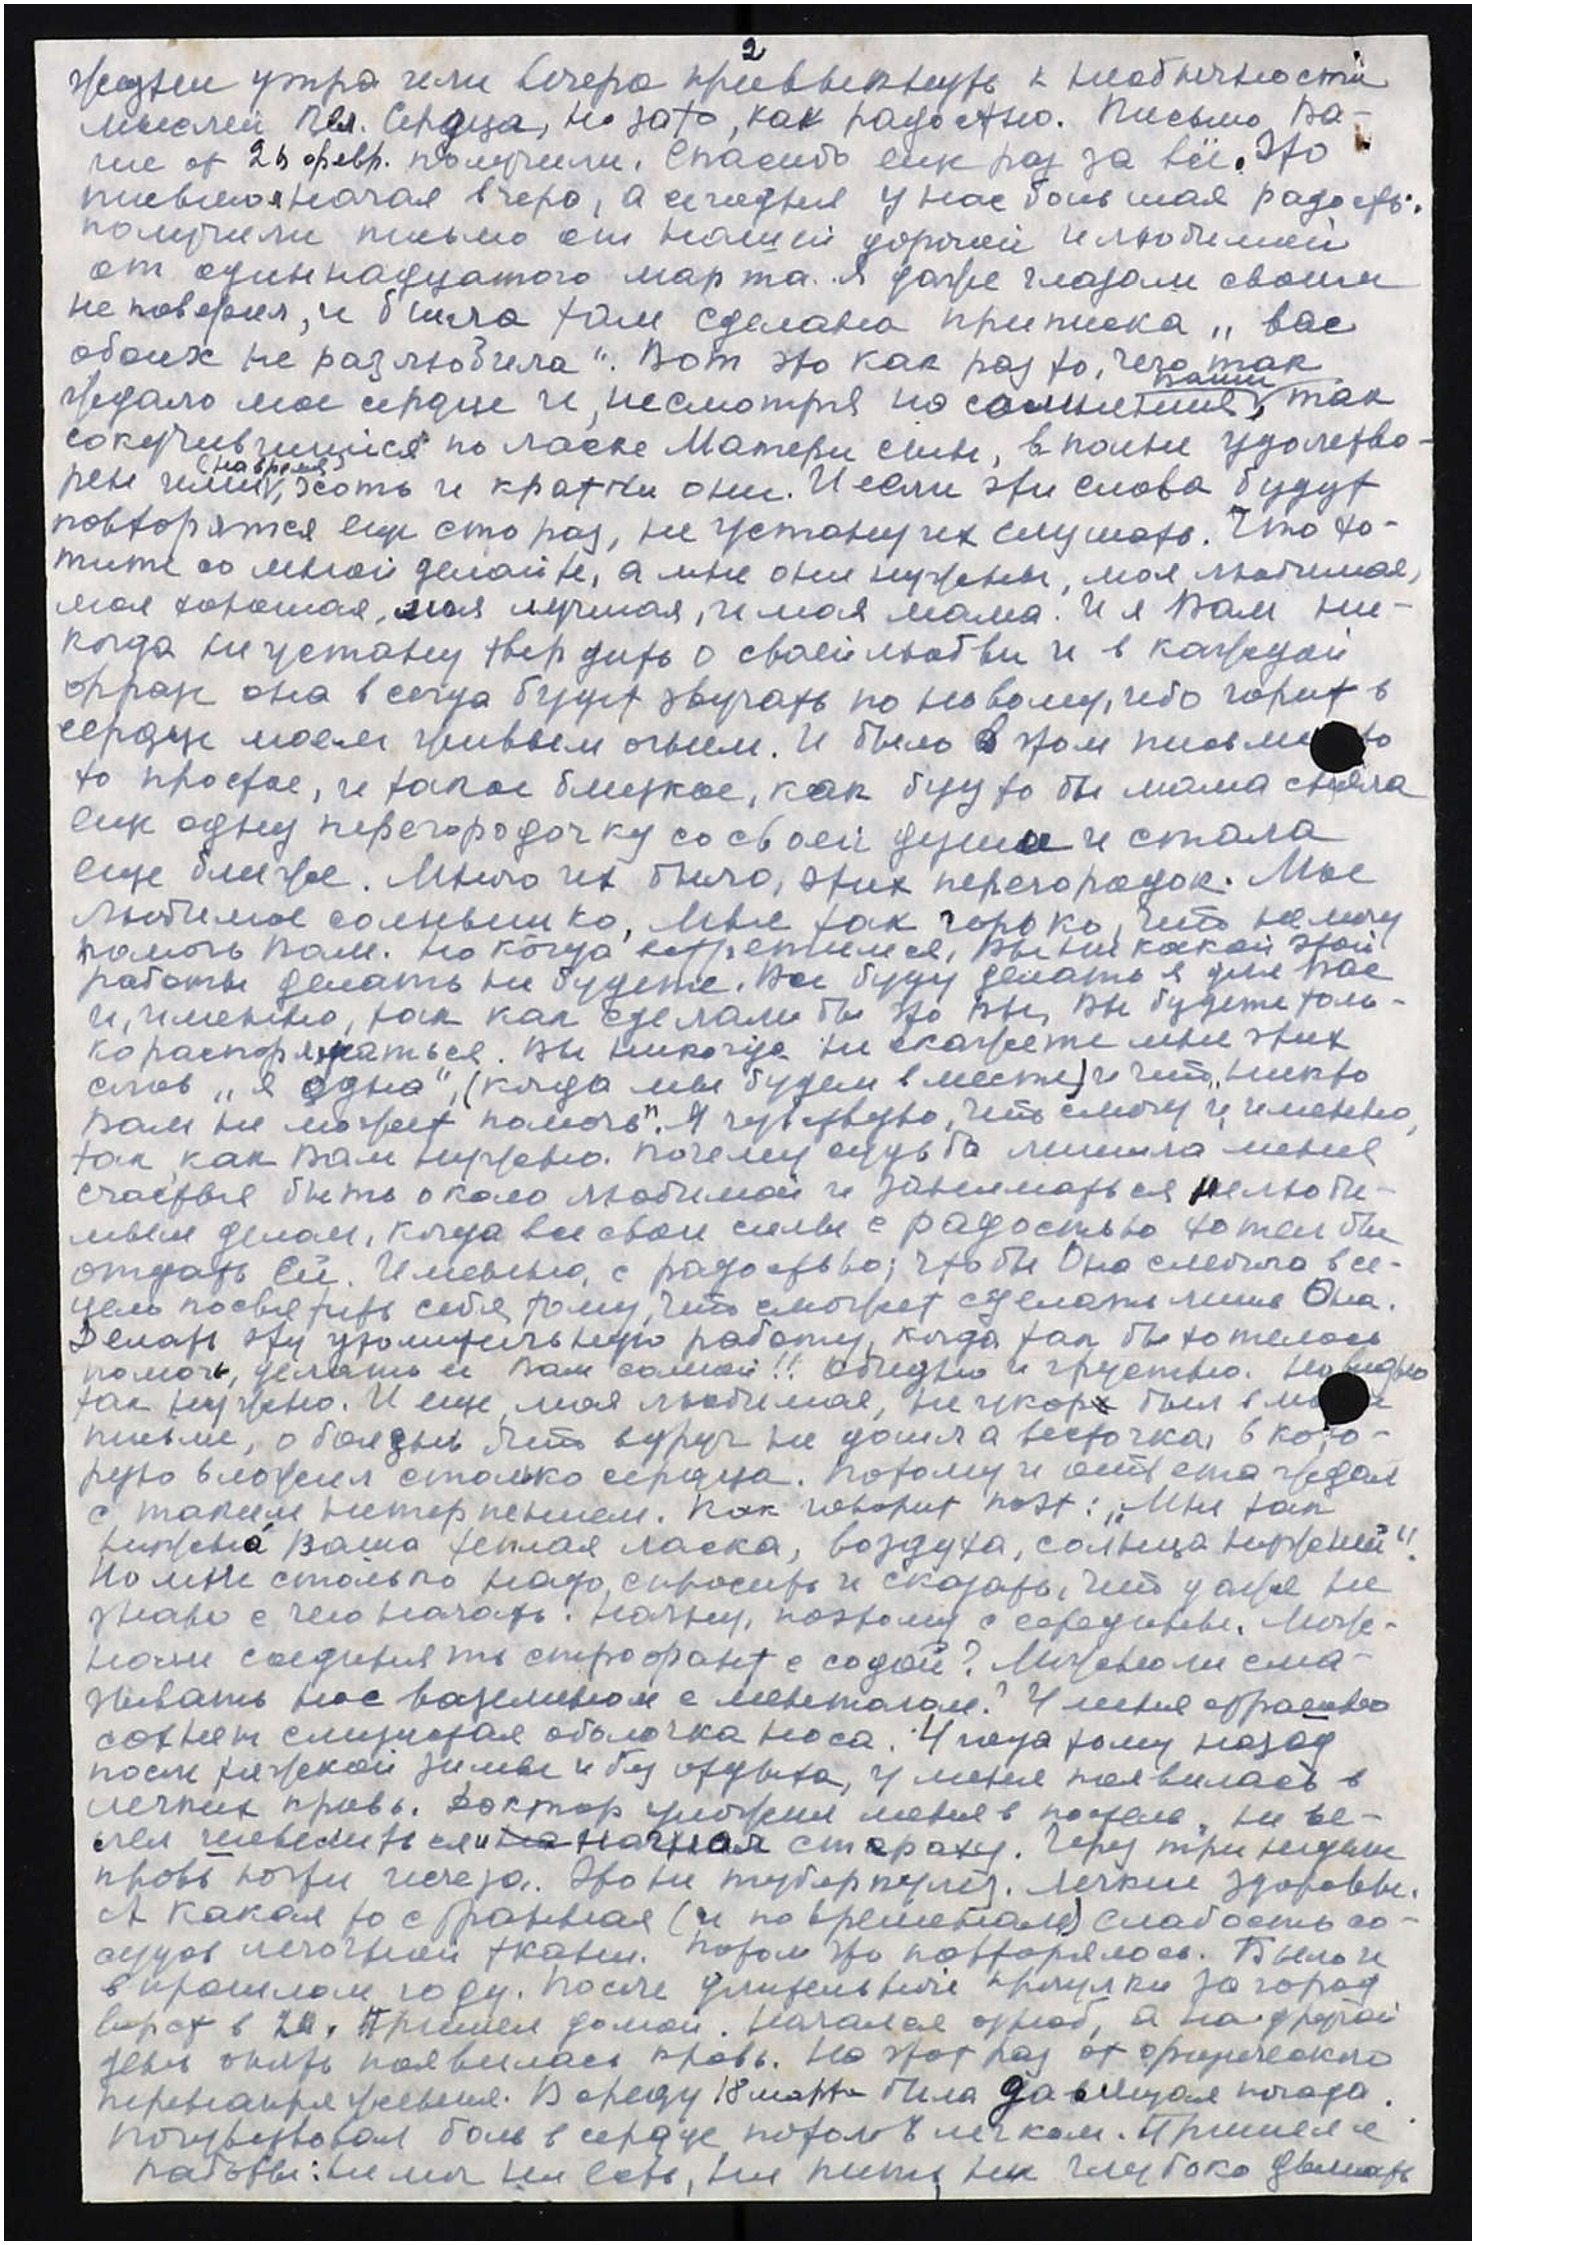 2
жизни утра или вечера привыкнуть к необычности
мыслей Пл. Сердца, но зато, как радостно. Письмо Ва-
ше от 25 февр. получили. Спасибо еще раз за всё. Это
письмо я начал вчера, а сегодня у нас большая радость.
получили письмо от нашей дорогой и любимой
от одиннадцатого марта. Я даже глазам своим
не поверил, и была там сделана приписка „вас
обоих не разлюбила". Вот это как раз то, чего так
ждало мое сердце и, несмотря на самые, так
соскучившийся по ласке Матери сын, вполне удолетво-
рен ими (на время), хоть и кратки они. И если эти слова будут
повторятся еще сто раз, не устану их слушать. Что хо-
тите со мной делайте, а мне они нужны, моя любимая,
моя хорошая, моя лучшая, и моя мама. И я Вам ни-
когда не устану твердить о своей любви и в каждой
фразе она всегда будет звучать по новому, ибо горит в
сердце моем живым огнем. И было в этом письме
то простое, и такое близкое, как будто бы мама сняла
еще одну перегородочку со своей души и стала
еще ближе. Много их было, этих перегородок. Мое
любимое солнышко, мне так горько, что не могу
помочь Вам. Но когда встретимся, Вы никакой этой
работы делать не будете. Все буду делать я для Вас
и, именно, так как сделали бы это Вы, Вы будете толь-
ко распоряжаться. Вы никогда не скажете мне этих
слов „я одна", (когда мы будем вместе) и что „никто
Вам не может помочь". Я чувствую, что смогу и, именно,
так, как Вам нужно. Почему судьба лишила меня
счастья быть около любимой и заниматься нелюби-
мым делом, когда все свои силы с радостью хотел бы
отдать Ей. Именно, с радостью; чтобы Она смогла все-
цело посвятить себя тому, что сможет сделать лишь Она.
Делать эту утомительную работу, когда так бы хотелось
помочь, делать ее Вам самой!! Обидно и грустно. Но видно
так нужно. И еще, моя любимая, не укор был в моем
письме, а боязнь, что вдруг не дошла весточка, в кото-
рую вложил столько сердца. Потому и ответа ждал
с таким нетерпением. Как говорит поэт: „Мне так
нужна́ Ваша теплая ласка, воздуха, солнца нужней".
Но мне столько надо спросить и сказать, что даже не
знаю с чего начать. Начну, поэтому с середины. Мож-
но ли соединять строфант с содой? Можно ли сма-
зывать нос вазелином с ментолом? У меня страшно
сохнет слизистая оболочка носа. 4 года тому назад
после тяжелой зимы и без отдыха, у меня появилась в
легких кровь. Доктор уложил меня в постель, не ве-
лел шевелиться и страху. Через три недели
кровь почти исчезла. Это не туберкулез. Легкие здоровы.
А какая то странная (и по временам) слабость со-
судов легочной ткани. Потом это повторялось. Было и
в прошлом году. После длительной прогулки за город
верст в 20. Пришел домой. Начался озноб, а на другой
день опять появилась кровь. На этот раз от физического
перенапряжения. В среду 18 марта была давящая погода.
Почувствовал боль в сердце потом в легком. Пришел с
работы: не мог ни есть, ни пить, ни глубоко дышать